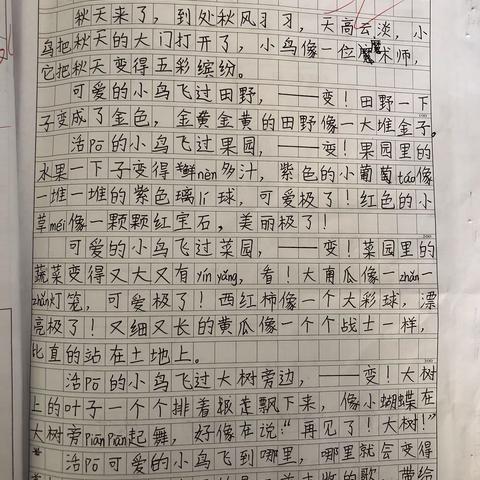 秋天来了，到处秋风习习，天高云淡，小
鸟把秋天的大门打开了，小鸟像一位魔术师，
它把秋天变得五彩缤纷。
可爱的小鸟飞过田野，——变！田野一下
子变成了金色，金黄金黄的田野像一大堆金子。
活pō的小鸟飞过果园，——变！果园里的
水果一下子变得鲜nèn多汁，紫色的小葡萄táo像
一堆一堆的紫色璃lí球，可爱极了！红色的小
草méi像一颗颗红宝石，美丽极了！
可爱的小鸟飞过菜园，——变！菜园里的
蔬菜变得又大又有yín yǎng，看！大南瓜像一zhǎn一
zhǎn灯笼，可爱极了！西红柿像一个大彩球，漂
亮极了！又细又长的黄瓜像一个个战士一样，
比直的站在土地上。
活pō的小鸟飞过大树旁边，——变！大树
上的叶子一个个排着队走飘下来，像小蝴蝶在
大树旁piān piān起舞，好像在说：“再见了！大树！”
活pō可爱的小鸟飞到哪里，哪里就会变得
的歌，带给